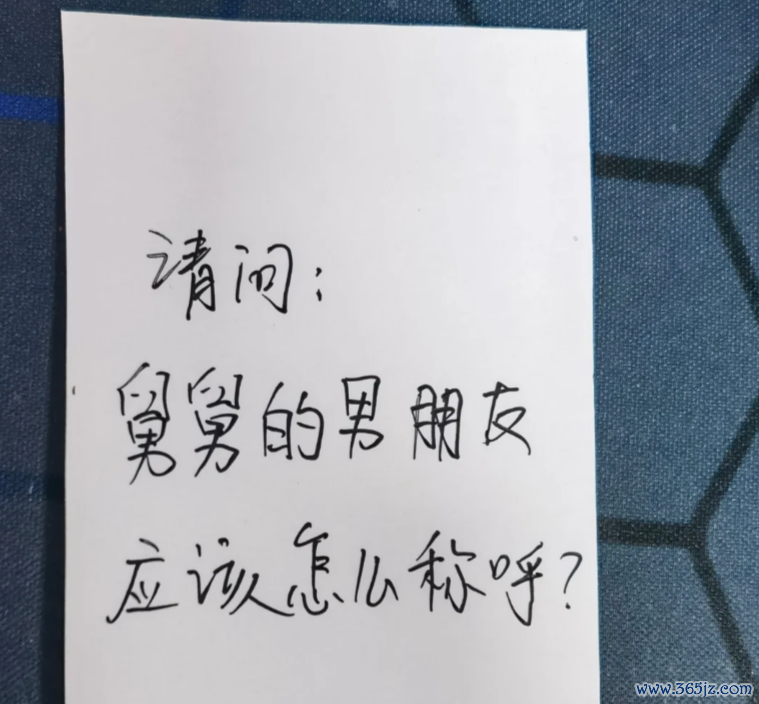 请问：
舅舅的男朋友
应该怎么称呼？
www.365jz.com